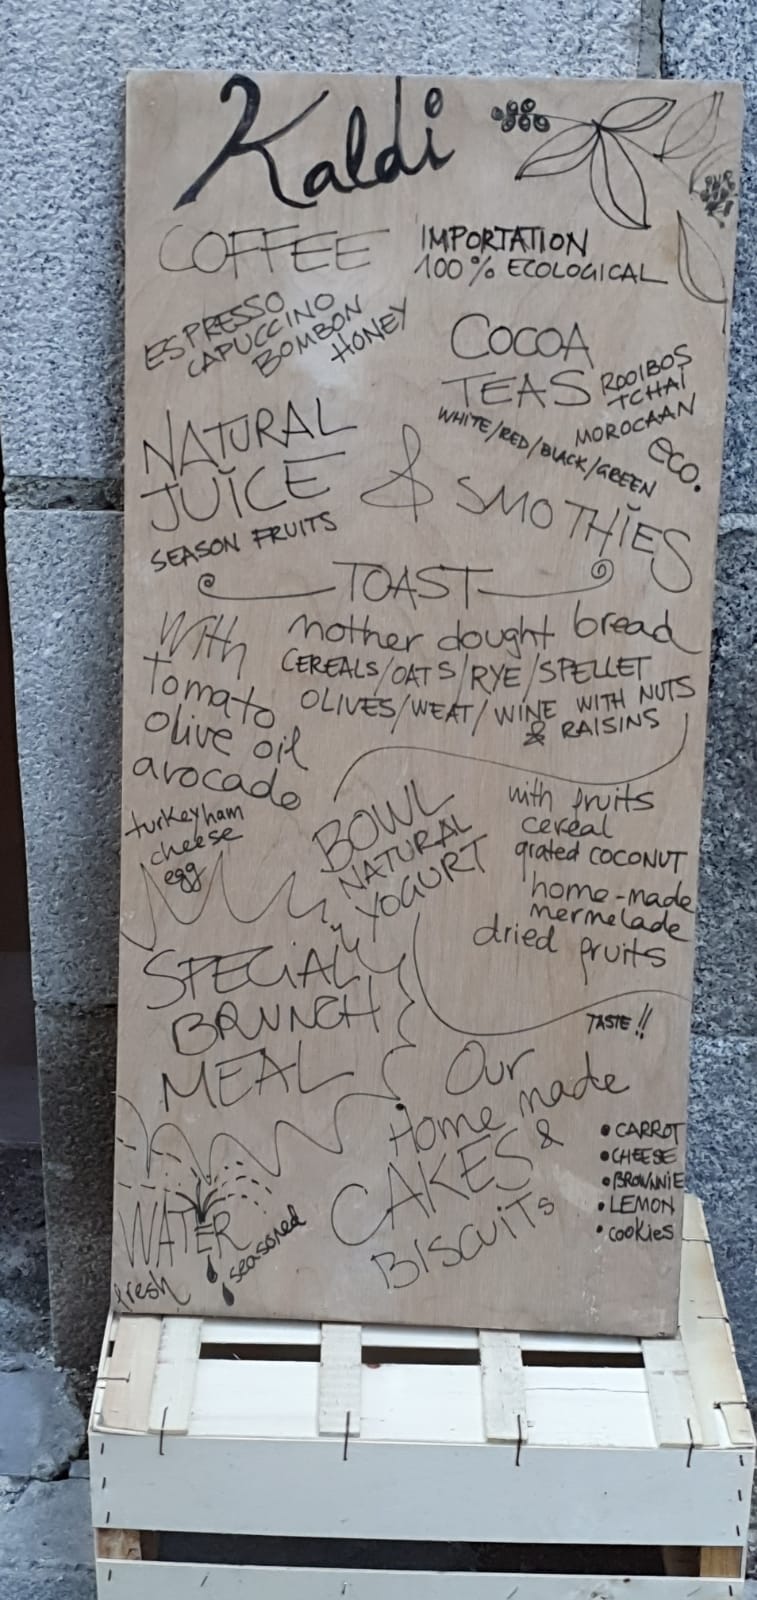 Kaldi
COFFEE
IMPORTATION
100% ECOLOGICAL
ESPRESSO
CAPUCCINO
BOMBON
HONEY
COCOA
TEAS
ROOIBOS
TCHAI
MOROCAAN
WHITE/RED/BLACK/GREEN
eco.
NATURAL
JUICE
SEASON FRUITS
& SMOTHIES
TOAST
With
tomato
olive oil
avocado
turkey ham
cheese
egg
mother dought bread
CEREALS/OATS/RYE/SPELLET
OLIVES/WEAT/WINE WITH NUTS
& RAISINS
BOWL
NATURAL
YOGURT
with fruits
cereal
grated COCONUT
home-made
mermelade
dried fruits
SPECIAL
BRUNCH
MEAL
TASTE!!
Our
Home made
CAKES &
BISCUITS
• CARROT
• CHEESE
• BROWNIE
• LEMON
• cookies
WATER
fresh
seasoned